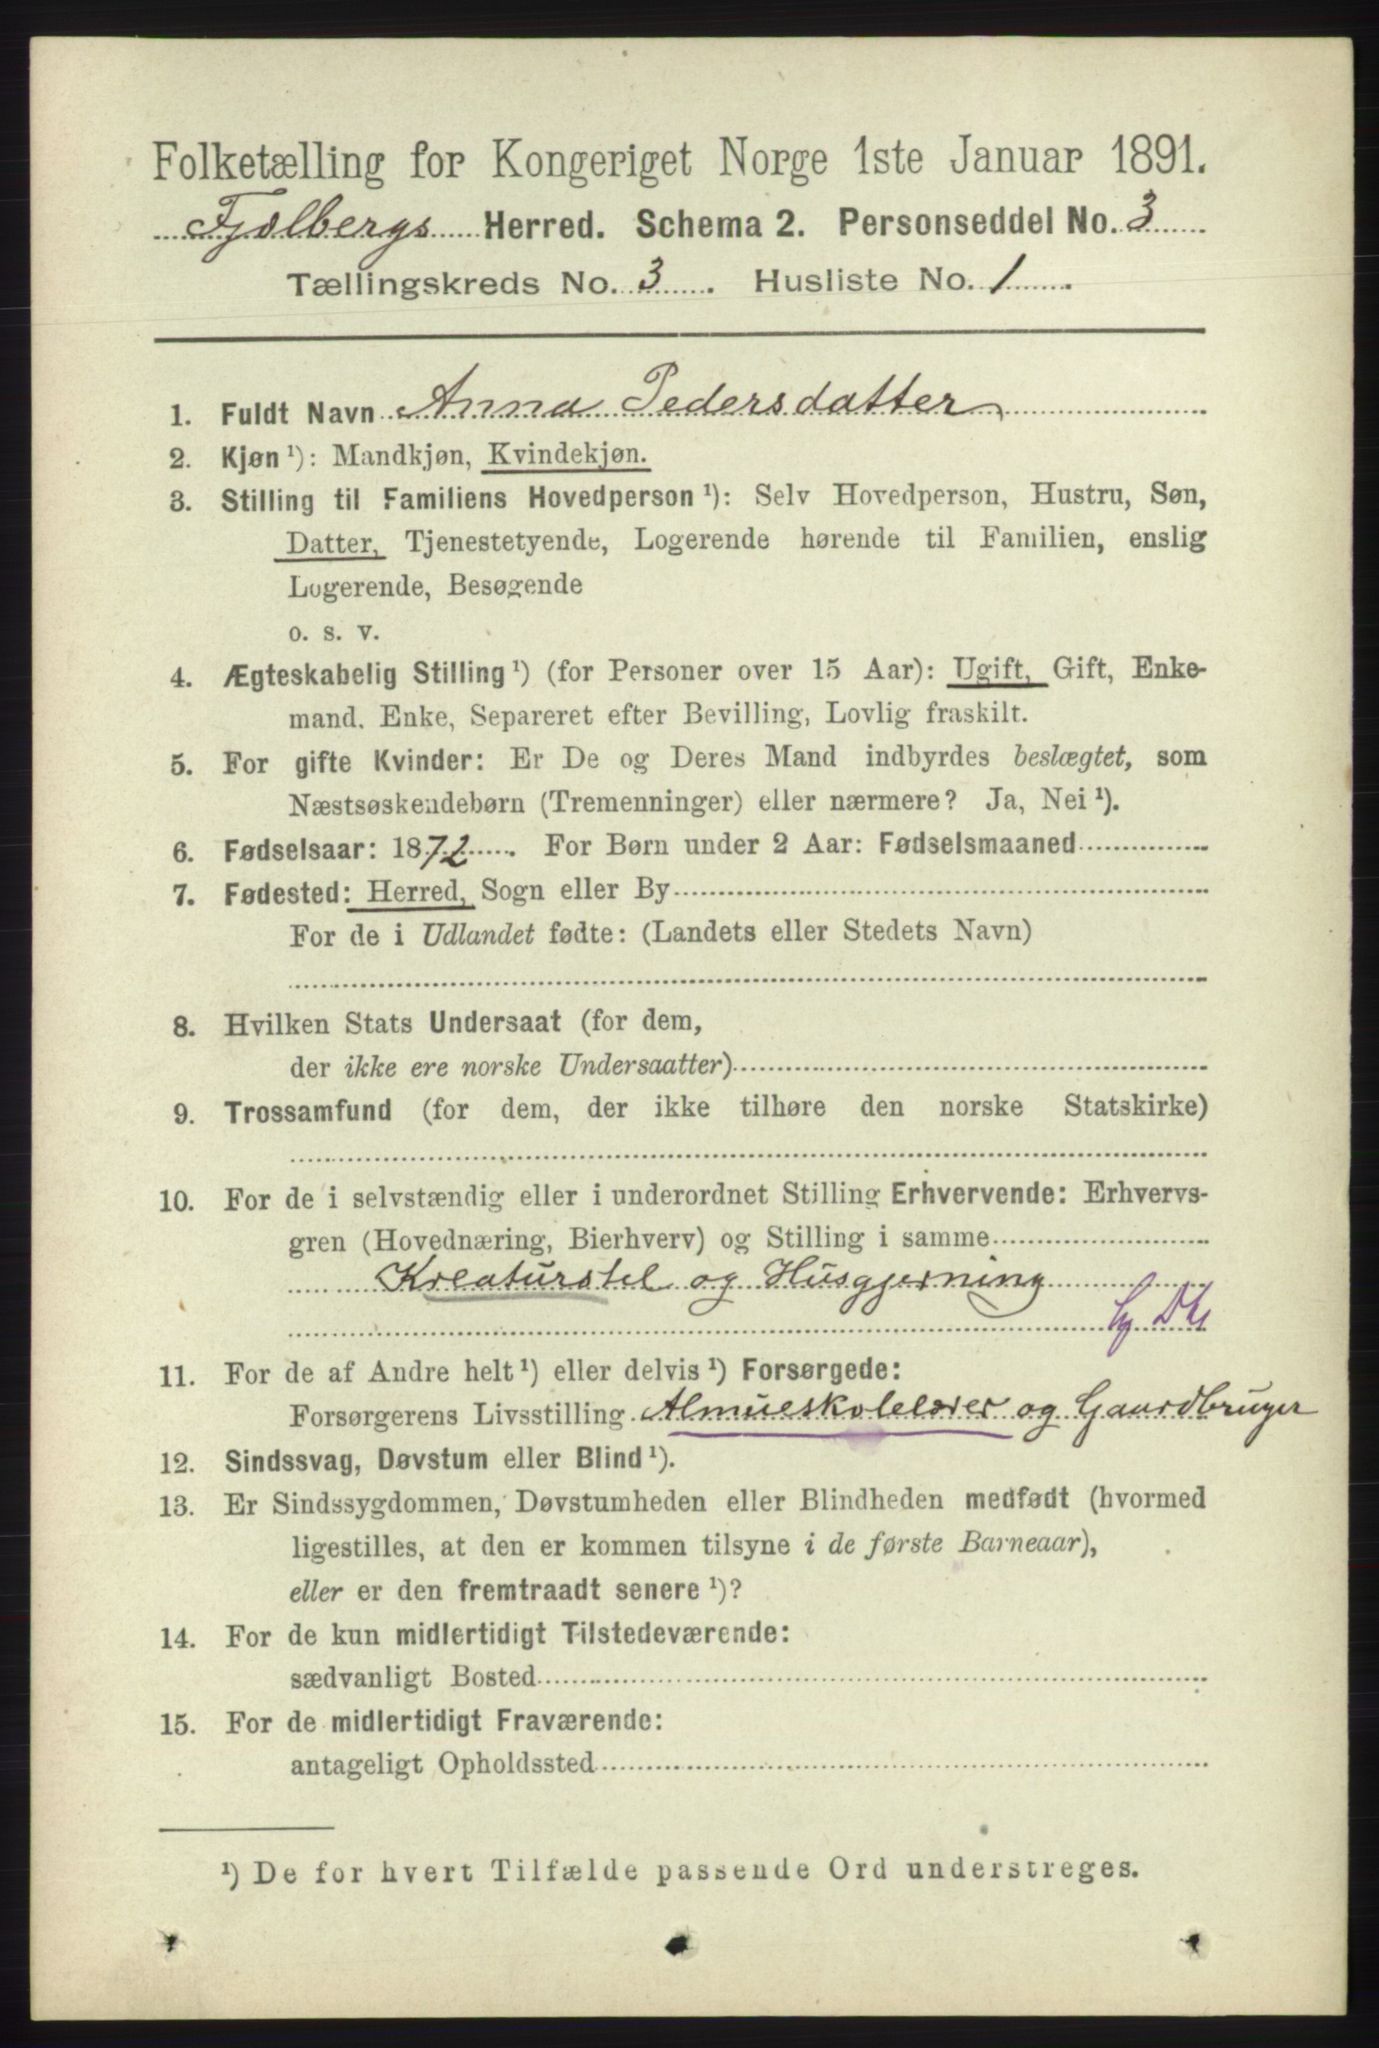 Folketælling for Kongeriget Norge 1ste Januar 1891.
Fjelbergs Herred. Schema 2. Personseddel No. 3
Tællingskreds No. 3. Husliste No. 1.
1. Fuldt Navn Anna Pedersdatter
2. Kjøn ¹): Mandkjøn, Kvindekjøn.
3. Stilling til Familiens Hovedperson ¹): Selv Hovedperson, Hustru, Søn,
Datter, Tjenestetyende, Logerende hørende til Familien, enslig
Logerende, Besøgende
o. s. v.
4. Ægteskabelig Stilling ¹) (for Personer over 15 Aar): Ugift, Gift, Enke-
mand, Enke, Separeret efter Bevilling, Lovlig fraskilt.
5. For gifte Kvinder: Er De og Deres Mand indbyrdes beslægtet, som
Næstsøskendebørn (Tremenninger) eller nærmere? Ja, Nei ¹).
6. Fødselsaar: 1872. For Børn under 2 Aar: Fødselsmaaned
7. Fødested: Herred, Sogn eller By
For de i Udlandet fødte: (Landets eller Stedets Navn)
8. Hvilken Stats Undersaat (for dem,
der ikke ere norske Undersaatter)
9. Trossamfund (for dem, der ikke tilhøre den norske Statskirke)
10. For de i selvstændig eller i underordnet Stilling Erhvervende: Erhvervs-
gren (Hovednæring, Bierhverv) og Stilling i samme
Kreaturstel og Husgjerning
11. For de af Andre helt ¹) eller delvis ¹) Forsørgede:
Forsørgerens Livsstilling Almueskolelærer og Gaardbruger
12. Sindssvag, Døvstum eller Blind ¹).
13. Er Sindssygdommen, Døvstumheden eller Blindheden medfødt (hvormed
ligestilles, at den er kommen tilsyne i de første Barneaar),
eller er den fremtraadt senere ¹)?
14. For de kun midlertidigt Tilstedeværende:
sædvanligt Bosted
15. For de midlertidigt Fraværende:
antageligt Opholdssted
¹) De for hvert Tilfælde passende Ord understreges.